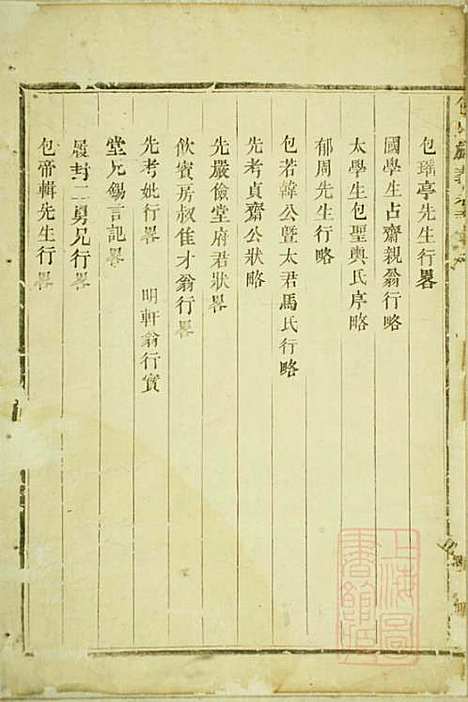 包璠亭先生行畧
國學生占齋親翁行略
太學生包聖輿氏序略
郁周先生行略
包若韓公暨太君馬氏行略
先考貞齋公狀略
先嚴儉堂府君狀畧
飲賓房叔佳才翁行畧
先考妣行畧 明軒翁行實
堂兄錫言記畧
貤封二舅兄行畧
包帝輯先生行畧
上海圖書館藏